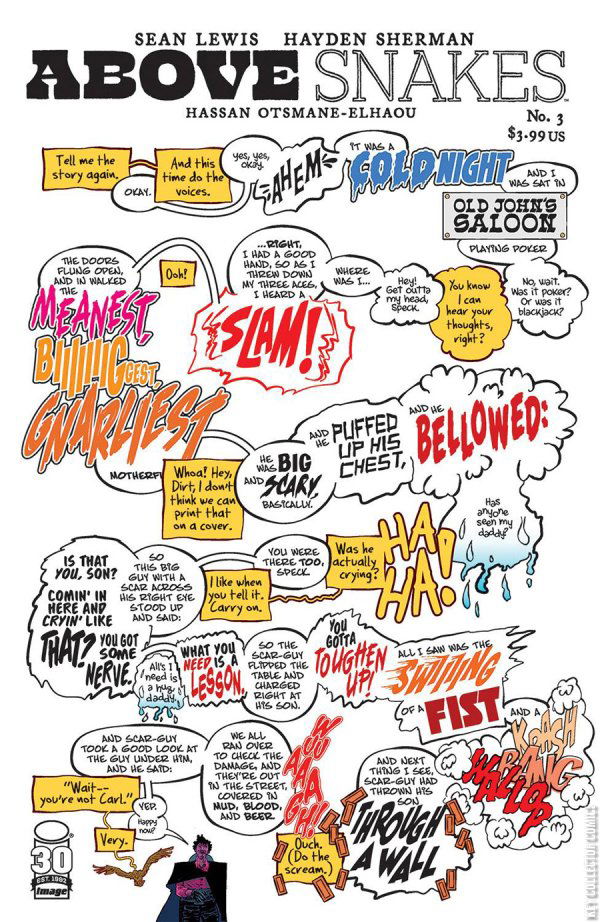 SEAN LEWIS HAYDEN SHERMAN
ABOVE SNAKES
HASSAN OTSMANE-ELHAOU
No. 3
$3.99 US
Tell me the
story again.
OKAY.
And this
time do the
voices.
yes, yes,
okay.
AHEM
IT WAS A
COLD NIGHT
AND I
WAS SAT IN
OLD JOHN'S
SALOON
PLAYING POKER
No, wait.
Was it poker?
Or was it
blackjack?
You know
I can
hear your
thoughts,
right?
Hey!
Get outta
my head,
Speck.
WHERE
WAS I...
...RIGHT,
I HAD A GOOD
HAND, SO AS I
THREW DOWN
MY THREE ACES,
I HEARD A
SLAM!
Ooh!
THE DOORS
FLUNG OPEN,
AND IN WALKED
THE
MEANEST,
BIIIIIIGGEST,
GNARLIEST
MOTHERF
Whoa! Hey,
Dirt, I don't
think we can
print that
on a cover.
HE
WAS BIG
AND SCARY,
BASICALLY.
AND HE
PUFFED
UP HIS
CHEST,
AND HE
BELLOWED:
Has
anyone
seen my
daddy?
HA
HA!
Was he
actually
crying?
YOU WERE
THERE TOO,
SPECK.
I like when
you tell it.
Carry on.
SO
THIS BIG
GUY WITH A
SCAR ACROSS
HIS RIGHT EYE
STOOD UP
AND SAID:
IS THAT
YOU, SON?
COMIN' IN
HERE AND
CRYIN' LIKE
THAT? YOU GOT
SOME
NERVE.
All's I
need is
a hug,
daddy.
WHAT YOU
NEED IS A
LESSON.
SO THE
SCAR-GUY
FLIPPED THE
TABLE AND
CHARGED
RIGHT AT
HIS SON.
YOU
GOTTA
TOUGHEN
UP!
ALL I SAW WAS THE
SWIIIIING
OF A FIST
AND A
KRASH
BANG
WALLOP
AND NEXT
THING I SEE,
SCAR-GUY HAD
THROWN HIS
SON
THROUGH
A WALL
Ouch.
(Do the
scream.)
WUUAAAAGH!
WE ALL
RAN OVER
TO CHECK THE
DAMAGE, AND
THEY'RE OUT
IN THE STREET,
COVERED IN
MUD, BLOOD,
AND BEER.
AND SCAR-GUY
TOOK A GOOD LOOK AT
THE GUY UNDER HIM,
AND HE SAID:
"Wait--
you're not Carl."
YEP.
Happy
now?
Very.
30
EST. 1992
image
KEY COLLECTOR COMICS